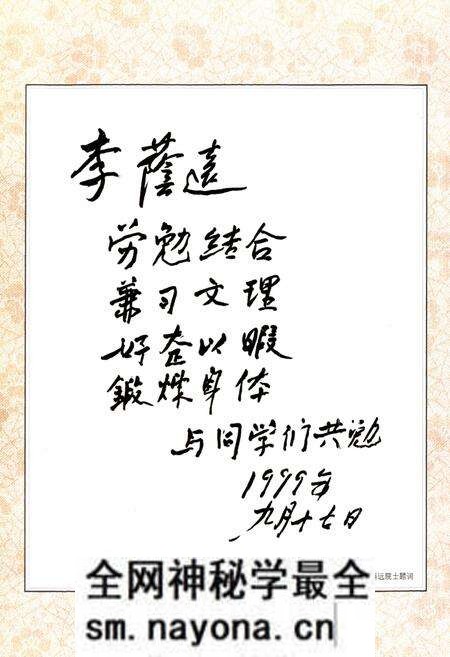 李蔭遠
劳逸结合
兼习文理
好整以暇
鍛煉身体
与同学们共勉
1999年
九月十七日
远院士题词
全网神秘学最全
sm.nayona.cn